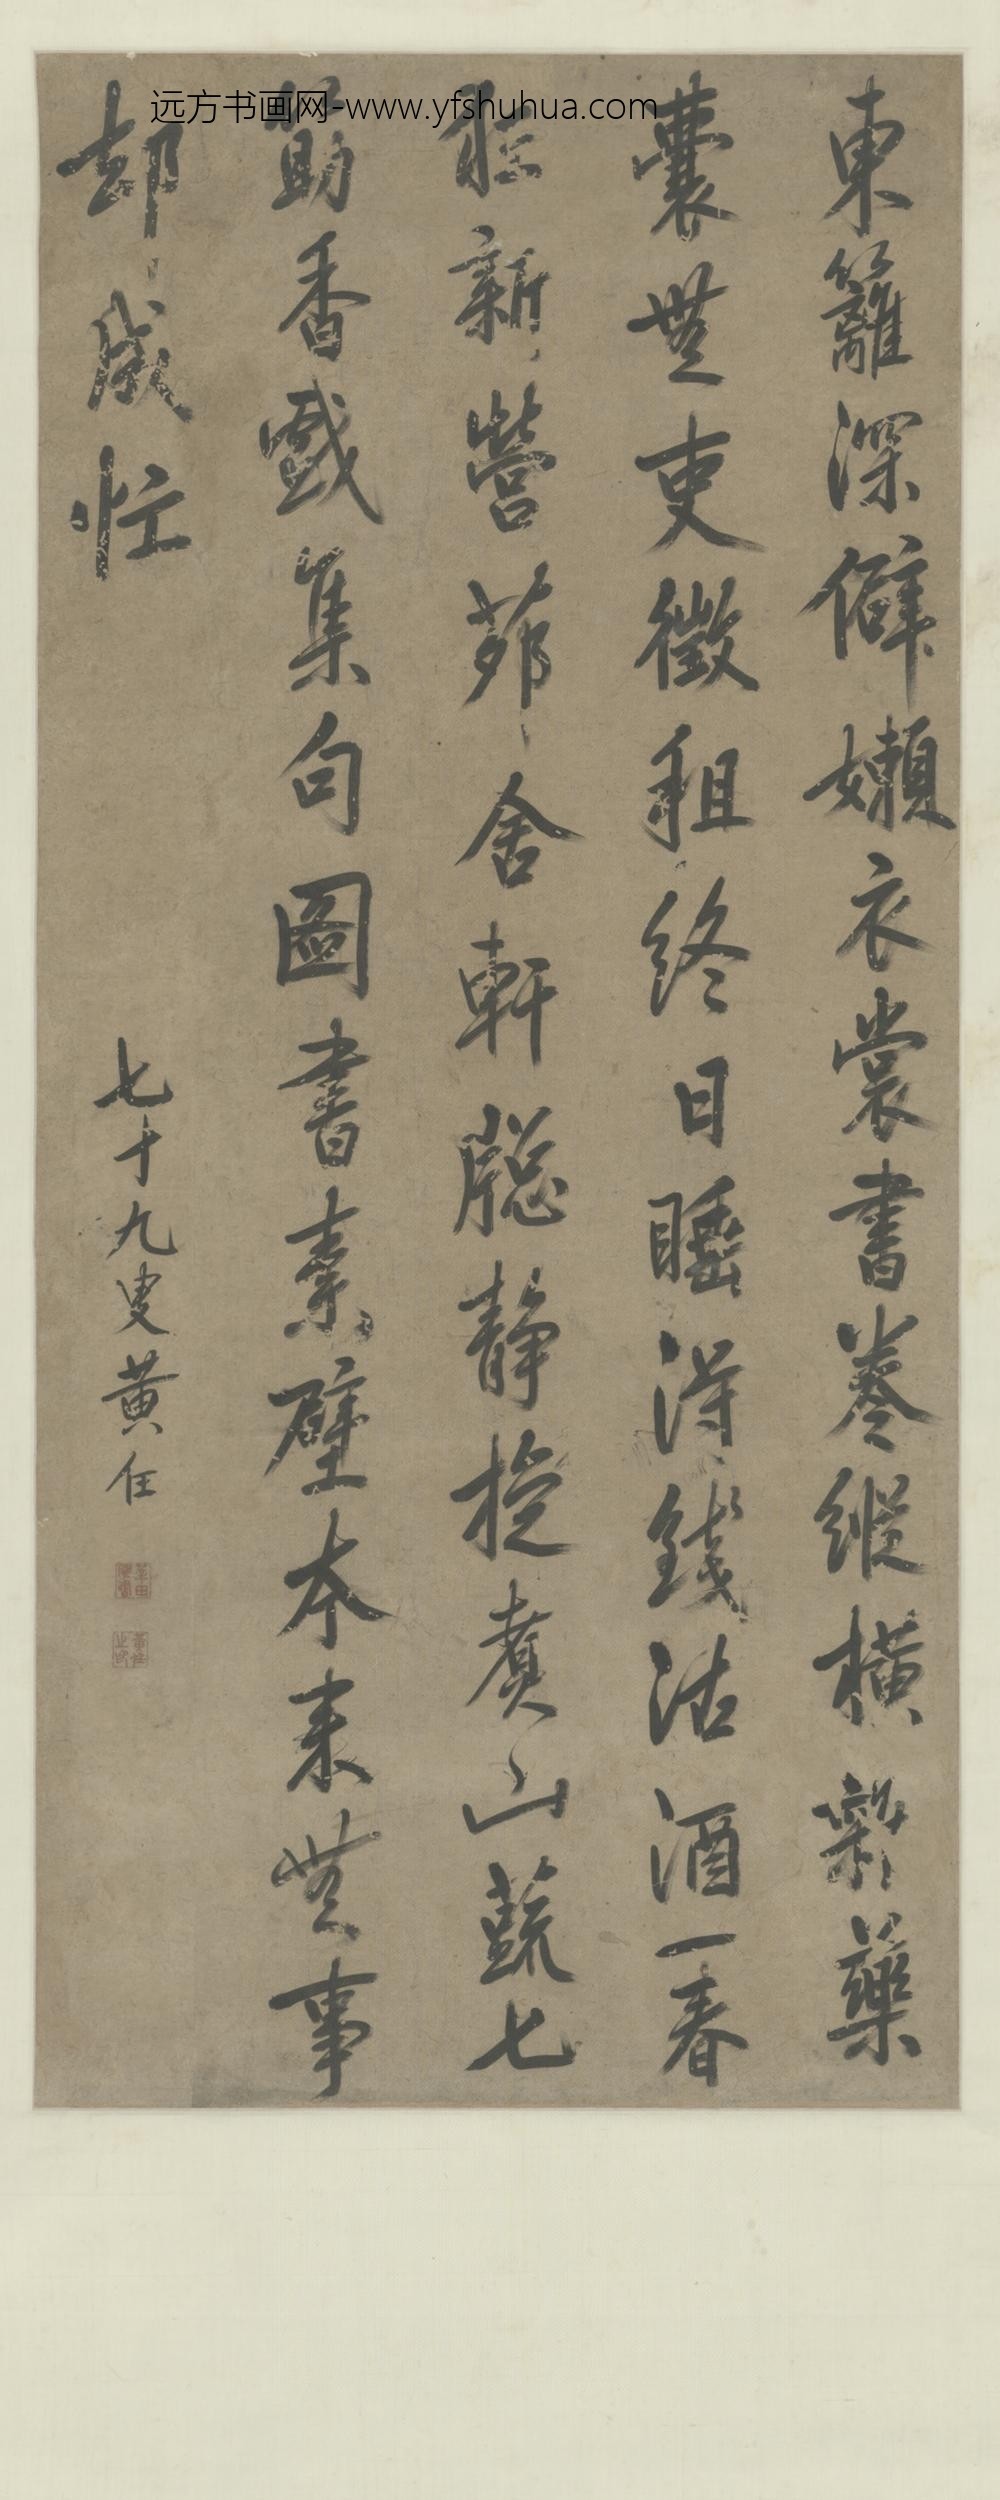 远方书画网-www.yfshuhua.com
東籬深僻嬾衣裳書卷縱橫雜藥
囊無吏徵租終日睡得錢沽酒一春
狂新營茆舍軒牕靜挖煮山蔬七
筯香戲集句圖書素壁本來無事
却成忙
七十九叟黃任
莘田
黃任之印